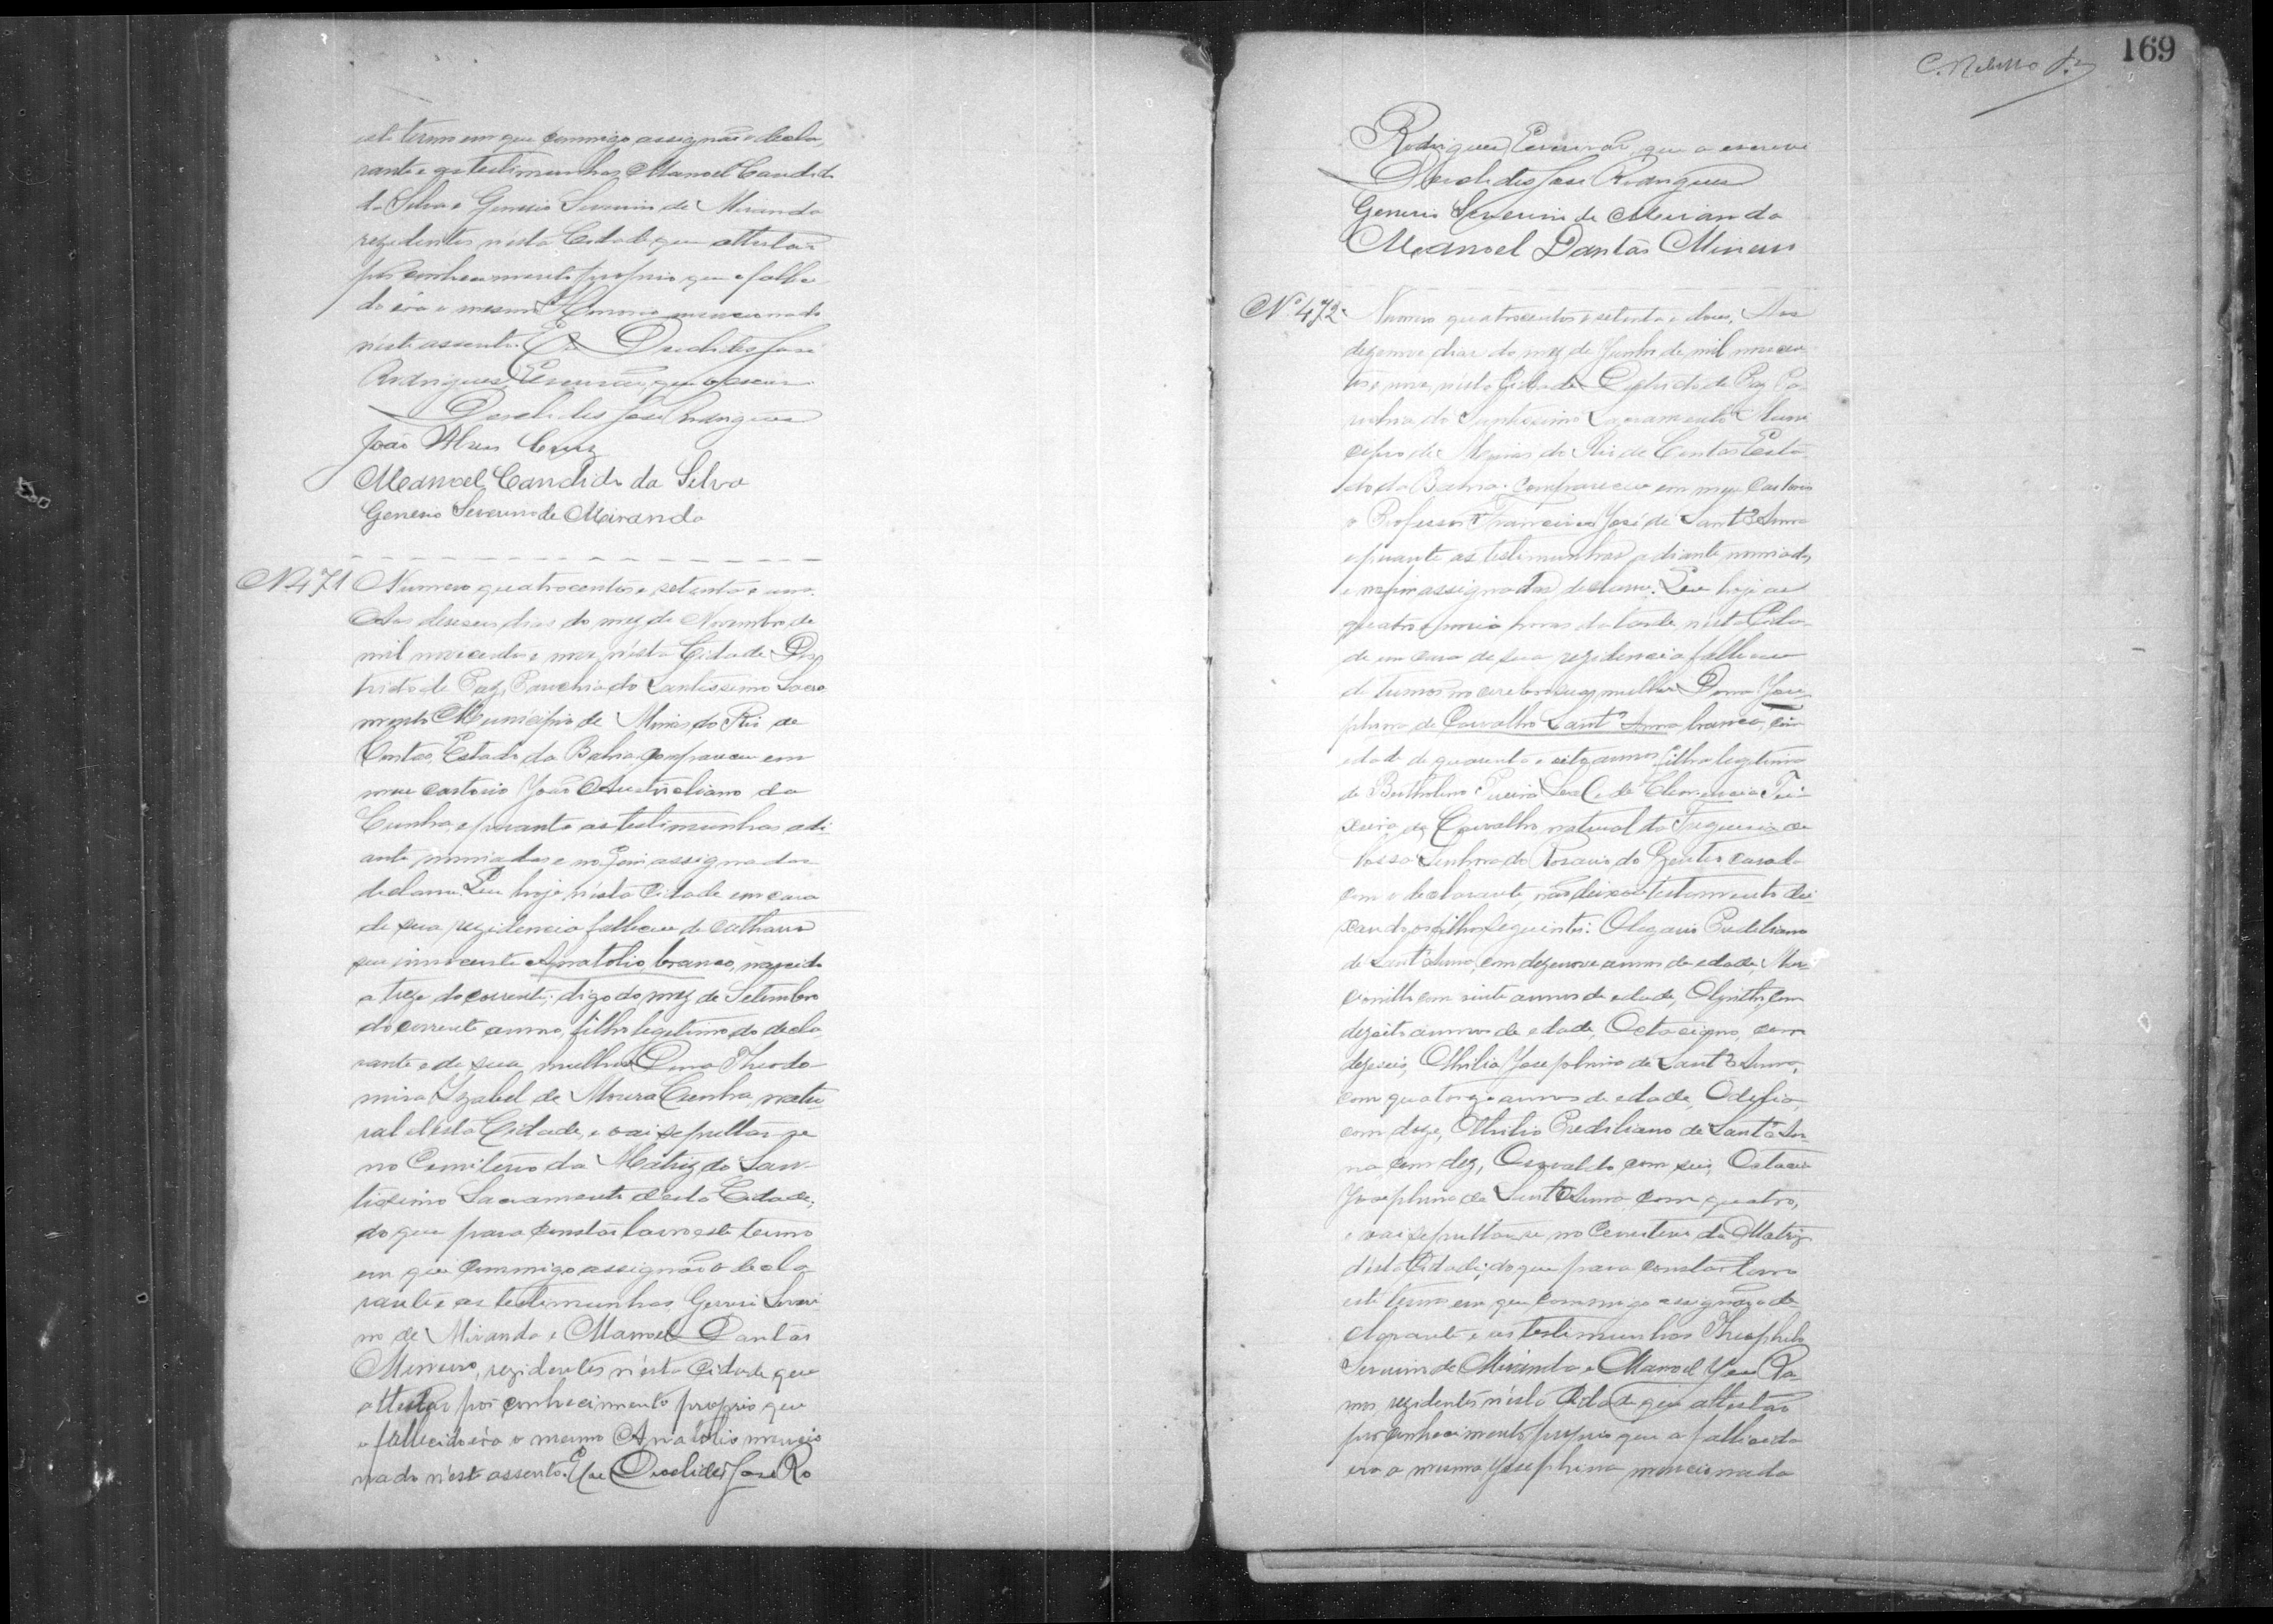 este termo em que commigo assignão o decla
rante e as testimunhas Manoel Candido
da Silva e Genesio Severino de Miranda
rezidentes n'ésta Cidade que attestão
por conhecimento proprio que o falleci
do éra o mesmo mencionado
n'éste assento. Eu Deoclides José
Rodrigues, Escrivão, que o escrevi.
Deoclides José Rodrigues
João Alves Cruz
Manoel Candido da Silva
Genesio Severino de Miranda
Nº 471 Numero quatrocentos e setenta e um.
Aos deseseis dias do mez de Novembro de
mil novecentos e nove, n'ésta Cidade Dis
tricto de Paz, Parochia do Santissimo Sacra
mento Municipio de Minas do Rio de
Contas, Estado da Bahia, compareceu em
meu cartorio João Australiano da
Cunha, e perante as testimunhas adi
ante nomiadas e no fim assignadas
declarou: Que hoje n'ésta Cidade em casa
de sua rezidencia falleceu de catharro
seu innocente Anatolio, branco, nascido
a treze do corrente, digo do mez de Setembro
do corrente anno, filho legitimo do decla
rante e de sua mulher Dona Theodo
mira Izabel de Moura Cunha, natu
ral d'ésta Cidade, e vai sepultar-se
no Cemiterio da Matriz do San
tissimo Sacramento d'ésta Cidade;
do que para constar lavro este termo
em que commigo assignão o decla
rante e as testimunhas Genesio Severi
no de Miranda e Manoel Dantas
Mineiro, rezidentes n'ésta Cidade que
attestão por conhecimento proprio que
o fallecido éra o mesmo Anatolio mencio
nado n'éste assento. Eu Deoclides José Ro
169
Rodrigues, Escrivão, que o escrevi
Deoclides José Rodrigues
Genesio Severino de Miranda
Manoel Dantas Mineiro
Nº 472 Numero quatrocentos e setenta e dous. Aos
dezenove dias do mez de Junho de mil novecen
tos e nove, n'ésta Cidade Districto de Paz, Pa
rochia do Santissimo Sacramento Muni
cipio de Minas do Rio de Contas, Esta
do da Bahia, compareceu em meu Cartorio
o Professor Francisco José de Sant'Anna
e perante as testimunhas adiante nomiadas
e no fim assignadas declarou: Que hoje as
quatro e meia horas da tarde, n'ésta Cida
de em casa de sua rezidencia falleceu
de tumor no cerebro sua mulher Dona Jose
phina de Carvalho Sant'Anna, branca, com
edade de quarenta e oito annos, filha legitima
de Bertholino Pereira Leal e de Clemencia Tei
xeira de Carvalho, natural da Freguesia de
Nossa Senhora do Rosario do Gentio casada
com o declarante, não deixou testamento dei
xando os filhos seguintes: Olegario Prediliano
de Sant'Anna, com dezenove annos de edade,
com vinte annos de edade, Olyntho, com
dezoito annos de edade, Octaciano, com
dezeseis, Othilia Josephina de Sant'Anna,
com quatorze annos de edade, Odesia,
com doze, Othilio Prediliano de Sant'An
na com dez, Oswaldo com seis, Octacia
Josephina de Sant'Anna com quatro,
e vai sepultar-se no Cemiterio da Matriz
d'ésta Cidade; do que para constar lavro
este termo em que commigo assignão o de
clarante e as testimunhas Theophilo
Severino de Miranda e Manoel José Ra
mos rezidentes n'ésta Cidade que attestão
por conhecimento proprio que a fallecida
éra a mesma Josephina mencionada